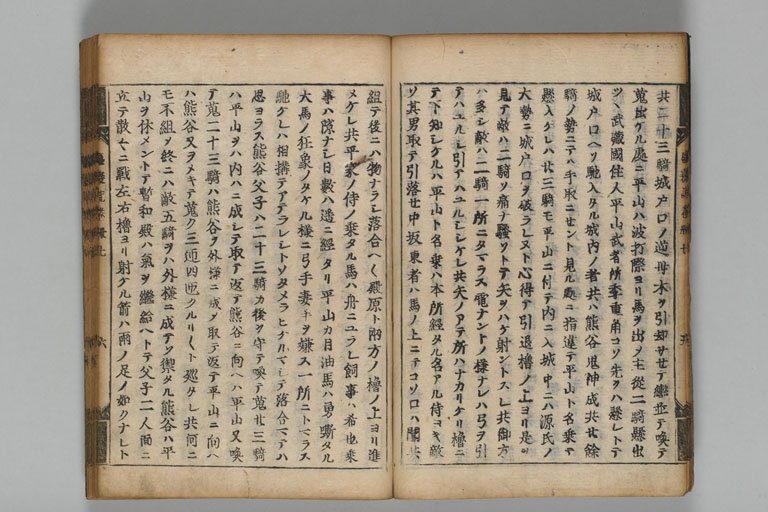 共二十三騎城戸口ノ逆母木ヲ引却サセテ轡並テ喚テ
蒐出ケル處ニ平山ハ波打際ヨリ馬ヲ出ヌ主從二騎懸出
ツヽ武藏國住人平山武者所季重角コソ先ヲハ懸レトテ
城戸口ヘソ馳入タル城内ノ者共ハ熊谷鬼神成共廿餘
騎ノ勢ニテハ手取ニセント見ル處ニ指違テ平山ト名乗テ
懸入ケレハ廿三騎モ平山ニ付テ内ニ入城中ニハ源氏ノ
大勢ニ城戸口ヲ破ラレヌト心得テ引退櫓ノ上ヨリ是ヲ
見テ敵ハ二騎ソ痛ナ騒ソトテ矢ヲハケ射ントスレ共御方
ハ多シ敵ハ二騎一所ニタマラス電ナントノ様ナレハ弓ヲ引
テハユルシ引テハユルシシケレ共矢ノアテ所ハナカリケリ櫓ニ
テ下知シケルハ平山ト名乗ハ本所經タル名アル侍ヨキ敵
ソ其男取テ引落セ中坂東者ハ馬ノ上ニテコソロハ聞共
組テ後ニハ物ナラシ落合ヘ〱殿原ト兩方ノ櫓ノ上ヨリ進
メケレ共平家ノ侍ノ乗タル馬ハ舟ニユラレ飼事ハ希也乗
事ハ隙ナシ日數ハ遥ニ經タリ平山カ目油馬ハ勇嘶タル
大馬ノ狂象ノタケル様ニ弓手妻手ヲ嫌ス一所ニトマラス
馳ケレハ相構テアテラレシトソタメラヒケルマシテ落合マテハ
思ヨラス熊谷父子ハ二十三騎カ後ヲ守テ喚テ蒐廿三騎
ハ平山ヲハ内ハニ成シテ取テ返テ熊谷ニ向ヘハ平山又喚
テ蒐二十三騎ハ熊谷ヲ外様ニ成シ取テ返テ平山ニ向ヘ
ハ熊谷又ヲメキテ蒐ク三𢌞四𢌞クルリ〱ト𢌞タレ共何ニ
モ不組ヲ終ニハ敵五騎ヲハ外様ニ成テソ禦タル熊谷ハ平
山ヲ休メントテ暫和殿ハ氣ヲ繼給ヘトテ父子二人面ニ
立テ散々ニ戰左右櫓ヨリ射ケル箭ハ雨ノ足ノ如クナレト